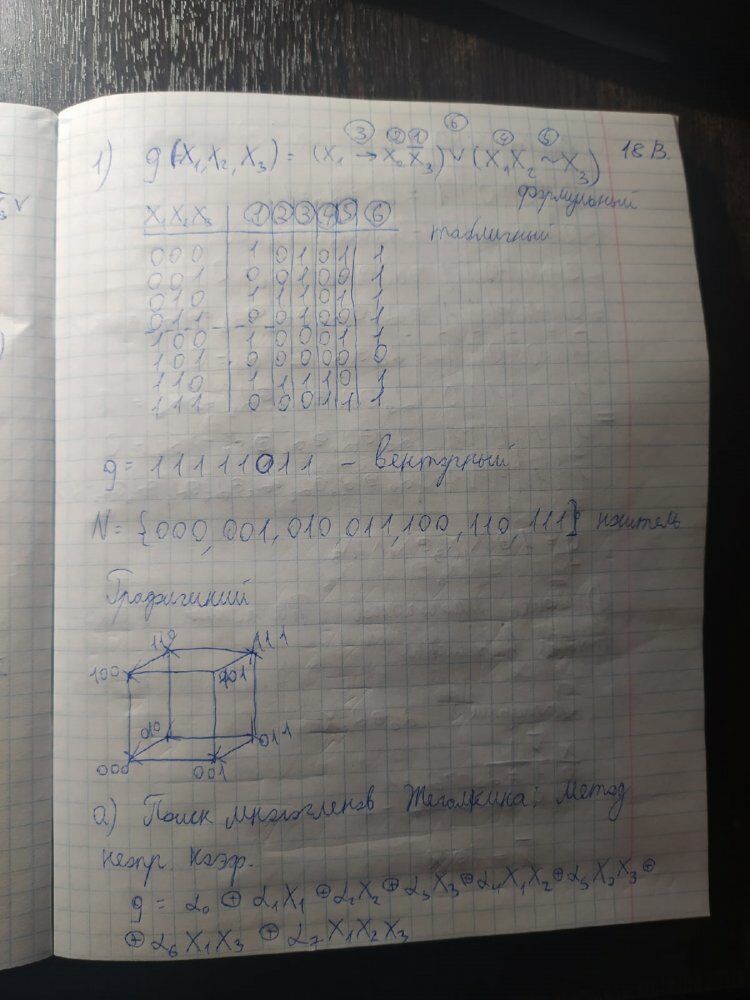 1) g(X₁,X₂,X₃) = (X₁ → X₂X̄₃) ∨ (X₁X₂ ~ X₃) 18 В.
③ ② ① ⑥ ④ ⑤
формульный
X₁X₂X₃ ① ② ③ ④ ⑤ ⑥ табличный
000 1 0 1 0 1 1
001 0 0 1 0 0 1
010 1 1 1 0 1 1
011 0 0 1 0 0 1
100 1 0 0 0 1 1
101 0 0 0 0 0 0
110 1 1 1 1 0 1
111 0 0 0 1 1 1
g= 11111011 – векторный
N= {000, 001, 010, 011, 100, 110, 111} носитель
Графический
110 111
100 101
010 011
000 001
а) Поиск многочленов Жегалкина: метод
неопр. коэф.
g = α₀ ⊕ α₁X₁ ⊕ α₂X₂ ⊕ α₃X₃ ⊕ α₄X₁X₂ ⊕ α₅X₂X₃ ⊕
⊕ α₆X₁X₃ ⊕ α₇X₁X₂X₃